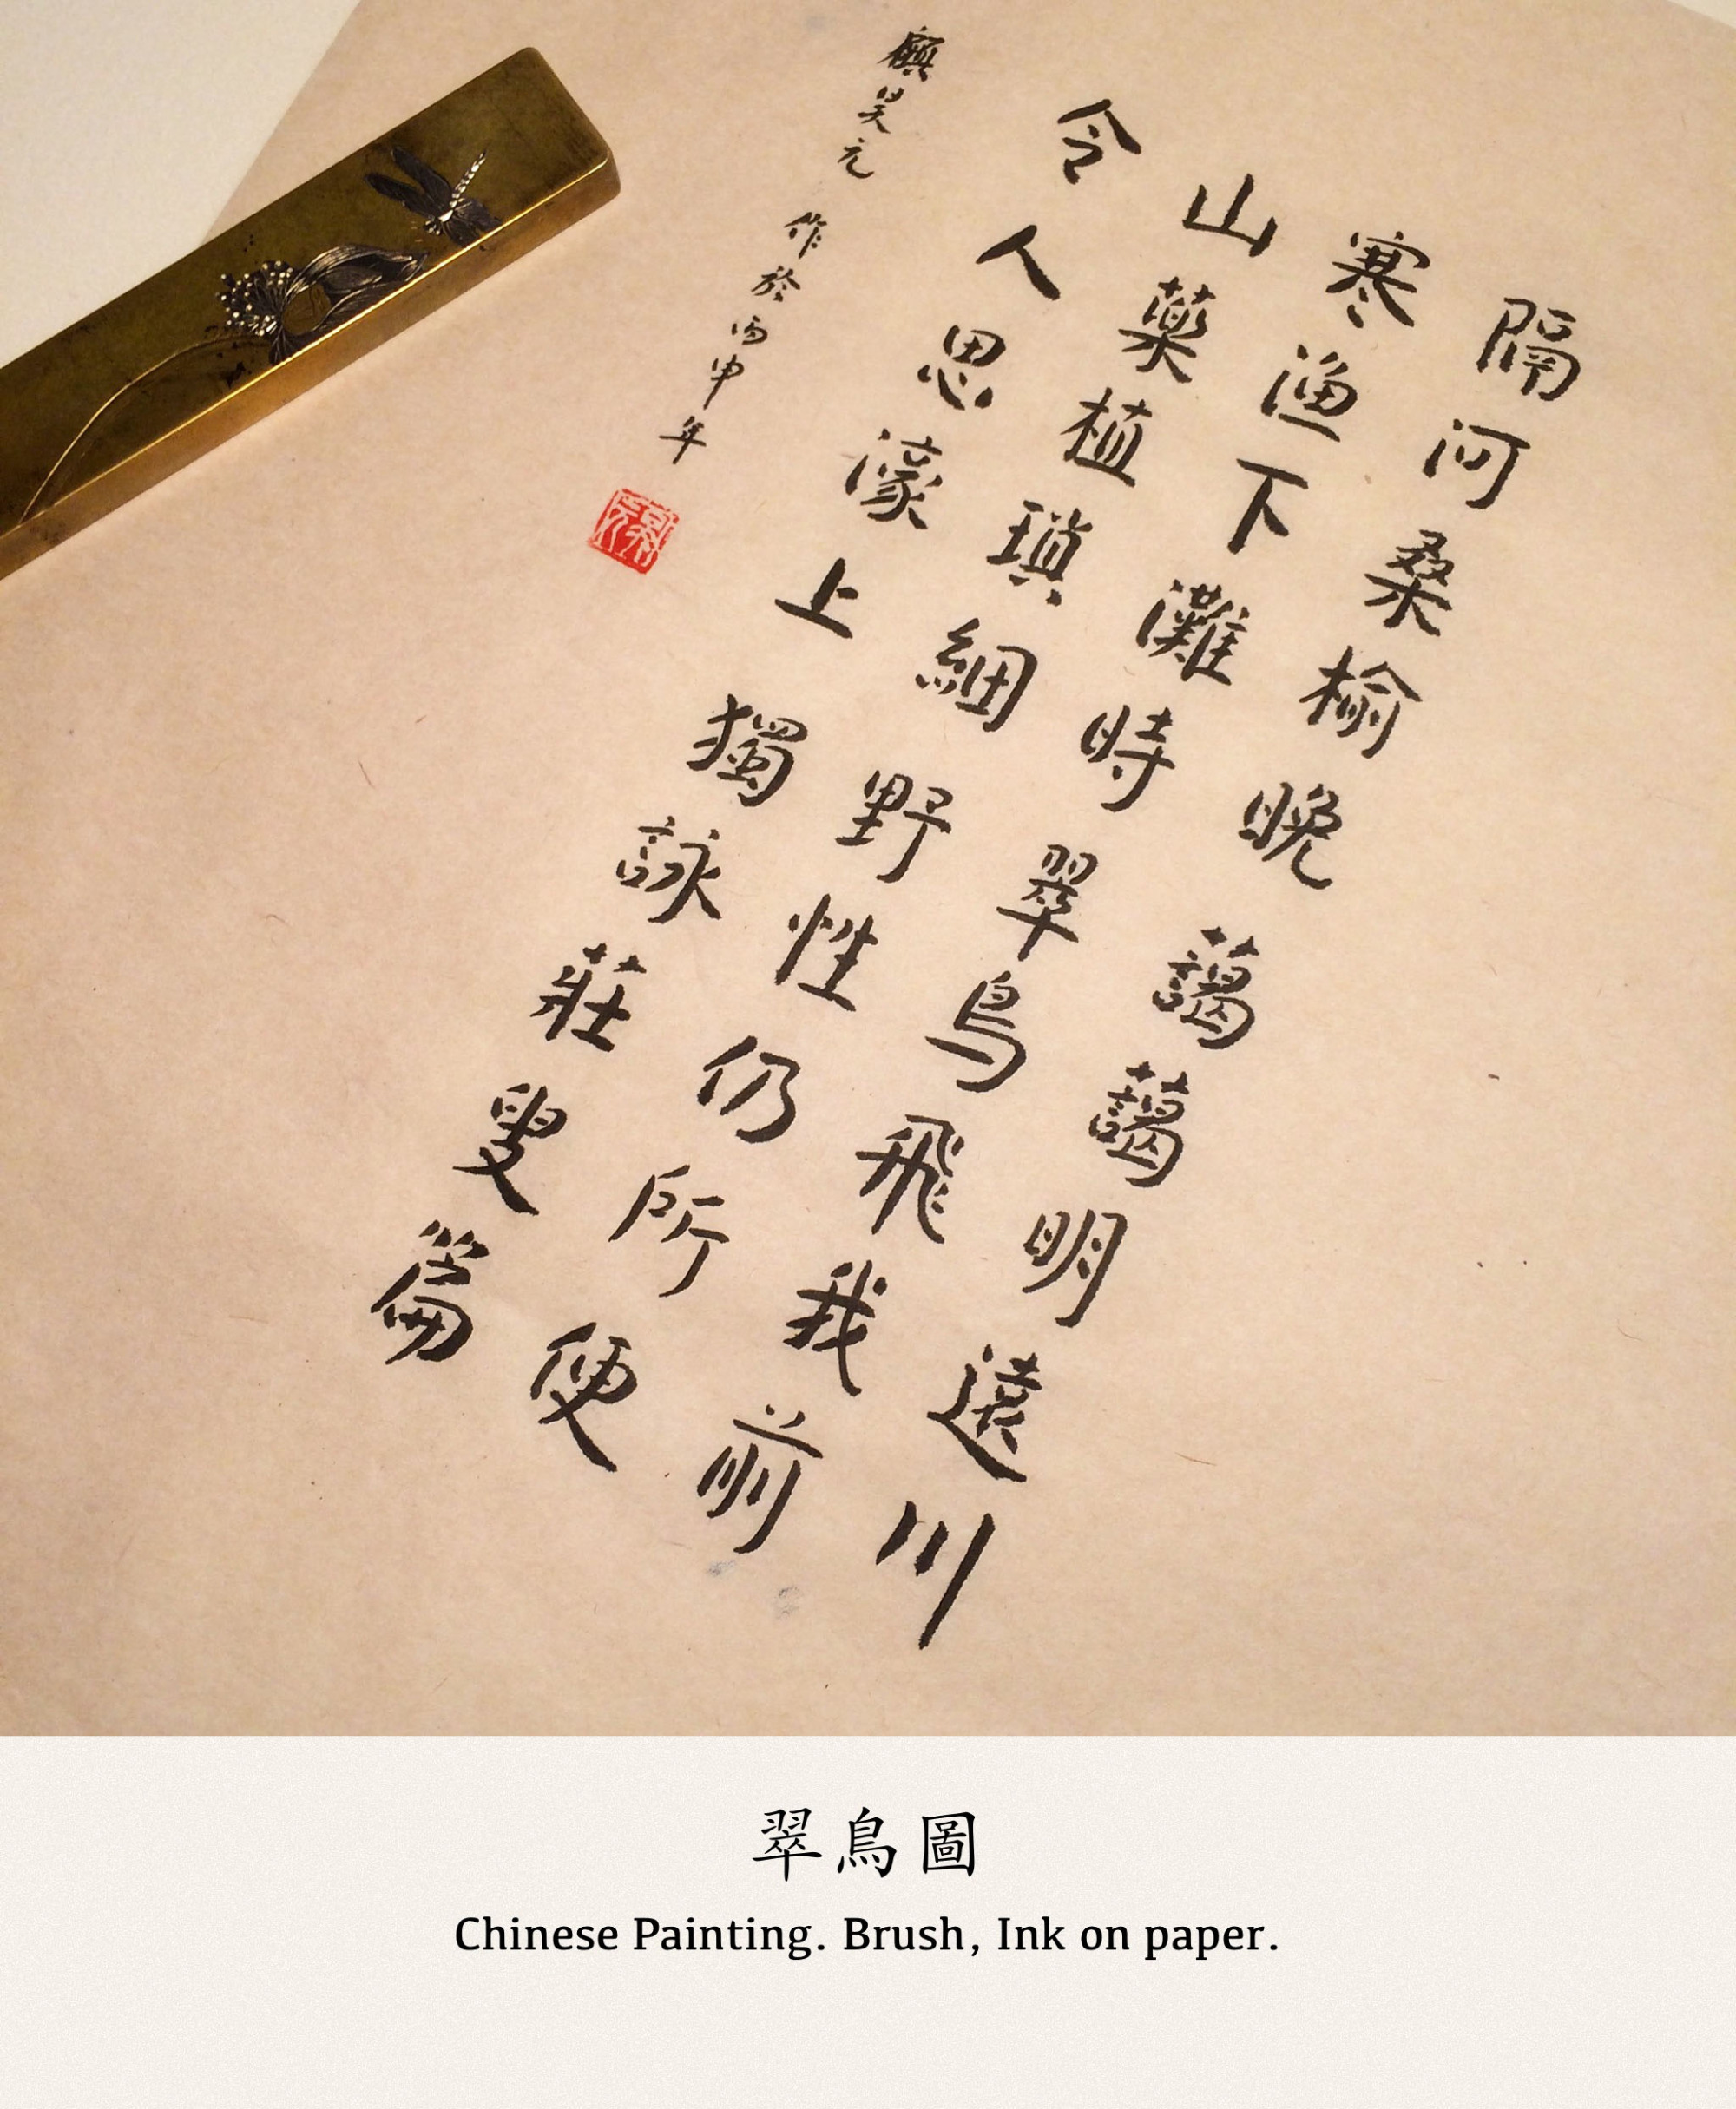 隔河桑榆晚 藹藹明遠川
寒渔下灘時 翠鳥飛我前
山藥植瑣細 野性仍所便
令人思濠上 獨詠莊叟篇
顧昊元 作於丙申年
翠鳥圖
Chinese Painting. Brush, Ink on paper.